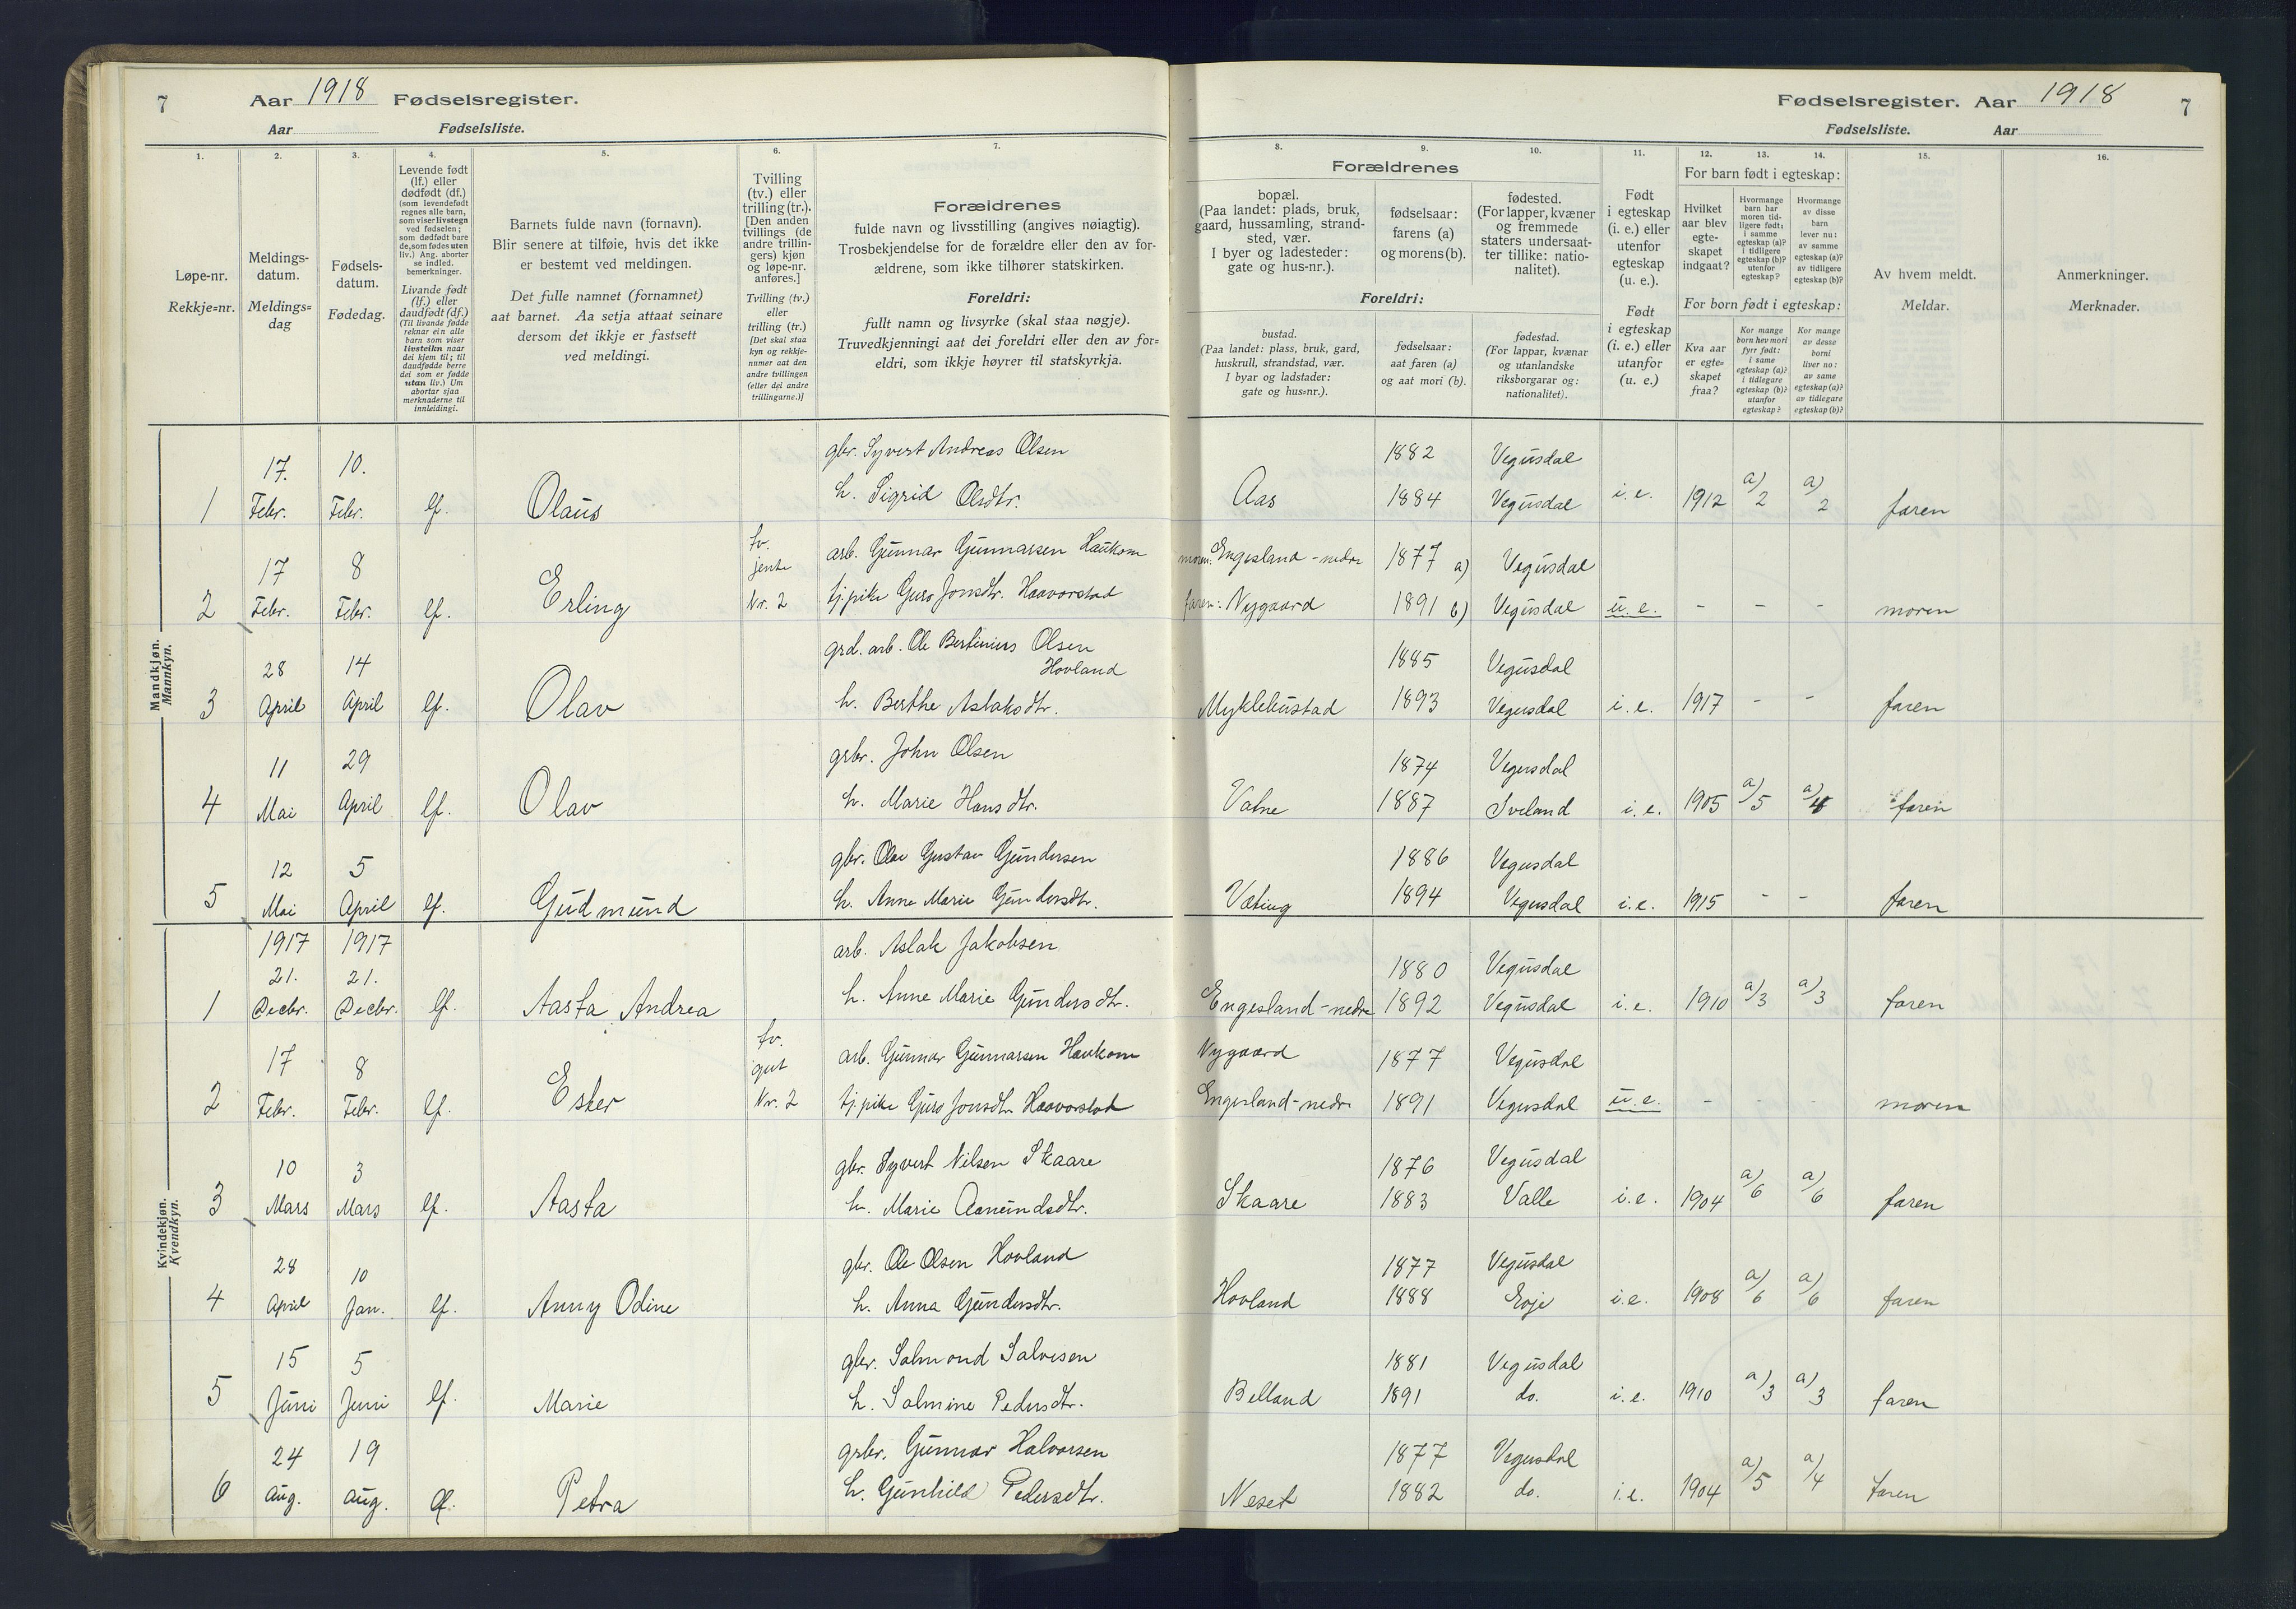 7 Aar 1918 Fødselsregister.
Aar Fødselsliste.
Fødselsregister. Aar 1918 7
Fødselsliste. Aar
1. 2. 3. 4. 5. 6. 7. 8. 9. 10. 11. 12. 13. 14. 15. 16.
Løpe-nr.
Rekkje=nr.
Meldings-
datum.
Meldings=
dag
Fødsels-
datum.
Fødedag.
Levende født
(lf.) eller
dødfødt (df.)
(som levendefødt
regnes alle barn,
som viser livstegn
ved fødselen;
som dødfødt bare
de, som fødes uten
liv.) Ang. aborter
se indled.
bemerkninger.
Livande født
(lf.) eller
daudfødt (df.)
(Til livande fødde
reknar ein alle
barn som viser
livsteikn naar
dei kjem til; til
daudfødde berre
dei som er fødde
utan liv.) Um
abortar sjaa
merknaderne til
innleidingi.
Barnets fulde navn (fornavn).
Blir senere at tilføie, hvis det ikke
er bestemt ved meldingen.
Det fulle namnet (fornamnet)
aat barnet. Aa setja attaat seinare
dersom det ikkje er fastsett
ved meldingi.
Tvilling
(tv.) eller
trilling (tr.).
[Den anden
tvillings (de
andre trillin-
gers) kjøn
og løpe-nr.
anføres.]
Tvilling (tv.)
eller
trilling (tr.)
[Det skal staa
kyn og rekkje-
numer aat den
andre tvillingen
(eller dei andre
trillingarne.)]
Forældrenes
fulde navn og livsstilling (angives nøiagtig).
Trosbekjendelse for de forældre eller den av for-
ældrene, som ikke tilhører statskirken.
Foreldri:
fullt namn og livsyrke (skal staa nøgje).
Truvedkjenningi aat dei foreldri eller den av for=
eldri, som ikkje høyrer til statskyrkja.
Forældrenes
bopæl.
(Paa landet: plads, bruk,
gaard, hussamling, strand-
sted, vær.
I byer og ladesteder:
gate og hus-nr.).
fødselsaar:
farens (a)
og morens (b).
fødested.
(For lapper, kvæner
og fremmede
staters undersaat-
ter tillike: natio-
nalitet).
Foreldri:
bustad.
(Paa landet: plass, bruk, gard,
huskrull, strandstad, vær.
I byar og ladstader:
gate og hus=nr.).
fødselsaar:
aat faren (a)
og aat mori (b).
fødestad.
(For lappar, kvænar
og utanlandske
riksborgarar og:
nationalitet).
Født
i egteskap
(i. e.) eller
utenfor
egteskap
(u. e.).
Født
i egteskap
(i. e.) eller
utanfor
egteskap
(u. e.)
For barn født i egteskap:
Hvilket
aar blev
egte-
skapet
indgaat?
Hvormange
barn har
moren tid-
ligere født:
i samme
egteskap (a)?
i tidligere
egteskap (b)?
utenfor
egteskap?
Hvormange
av disse
barn
lever nu:
av samme
egteskap (a)?
av tidligere
egteskap (b)?
For born født i egteskap:
Kva aar
er egte=
skapet
fraa?
Kor mange
born hev mori
fyrr født:
i same
egteskap (a)?
i tidlegare
egteskap (b)?
utanfor
egteskap?
Kor mange
av desse
borni
liver no:
av same
egteskap (a)?
av tidlegare
egteskap (b)?
Av hvem meldt.
Meldar.
Anmerkninger.
Merknader.
Mandkjøn.
Mannkyn.
1 17. Febr. 10. Febr. lf. Olaus gbr. Syvert Andreas Olsen
h. Sigrid Olsdtr. Aas 1882 Vegusdal
1884 Vegusdal i.e. 1912 a) 2 a) 2 faren
2 17 Febr. 8 Febr. lf. Erling tv. jente Nr. 2 arb. Gunnar Gunnarsen Haukom
tj.pike Guro Jonsdtr. Haavorstad moren: Engesland-nedre 1877 a) Vegusdal
faren: Nygaard 1891 b) Vegusdal u.e. - - - moren
3 28 April 14 April lf. Olav grd. arb. Ole Bertinius Olsen
Hovland
h. Berthe Aslaksdtr. Myklebustad 1885 Vegusdal
1893 Vegusdal i.e. 1917 - - faren
4 11 Mai 29 April lf. Olav grbr. John Olsen
h. Marie Hansdtr. Vatne 1874 Vegusdal
1887 Iveland i.e. 1905 a/5 a/4 faren
5 12 Mai 5 April lf. Gudmund gbr. Olav Gustav Gundersen
h. Anne Marie Gundersdtr. Væting 1886 Vegusdal
1894 Vegusdal i.e. 1915 - - faren
Kvindekjøn.
Kvendkyn.
1 1917 21. Decbr. 1917 21. Decbr. lf. Aasta Andrea arb. Aslak Jakobsen
h. Anne Marie Gundersdtr. Engesland-nedre 1880 Vegusdal
1892 Vegusdal i.e. 1910 a/3 a/3 faren
2 17 Febr. 8 Febr. lf. Ester tv. gut Nr. 2 arb. Gunnar Gunnarsen Haukom
tj.pike Guro Jonsdtr. Haavorstad Nygaard 1877 Vegusdal
Engesland-nedre 1891 Vegusdal u.e. - - - moren
3 10 Mars 3 Mars lf. Aasta gbr. Syvert Nilsen Skaare
h. Marie Aanundsdtr. Skaare 1876 Vegusdal
1883 Valle i.e. 1904 a/6 a/6 faren
4 28 April 10 Jan. lf. Anny Odine gbr. Ole Olsen Hovland
h. Anna Gundersdtr. Hovland 1877 Vegusdal
1888 Evje i.e. 1908 a/6 a/6 faren
5 15 Juni 5 Juni lf. Marie gbr. Salmond Salvesen
h. Salmine Pedersdtr. Belland 1881 Vegusdal
1891 do. i.e. 1910 a/3 a/3 faren
6 24 Aug. 19 Aug. lf. Petra grbr. Gunnar Halvorsen
h. Gunhild Pedersdtr. Neset 1877 Vegusdal
1882 do. i.e. 1904 a/5 a/4 faren